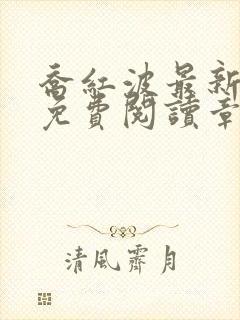 喬紅波最新
免費閱讀章
清風霽月